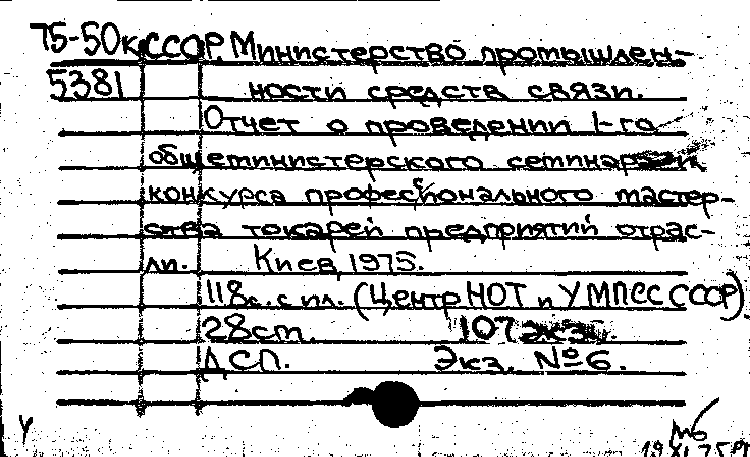 75-50к СССР. Министерство промышлен-
5381 ности средств связи.
Отчет о проведении 1-го
общеминистерского семинара и
конкурса профессионального мастер-
ства токарей предприятий отрас-
ли. Киев, 1975.
118с. с ил. (Центр НОТ и УМПСС СССР)
28см. 107 экз.
ДСП. Экз. №6.